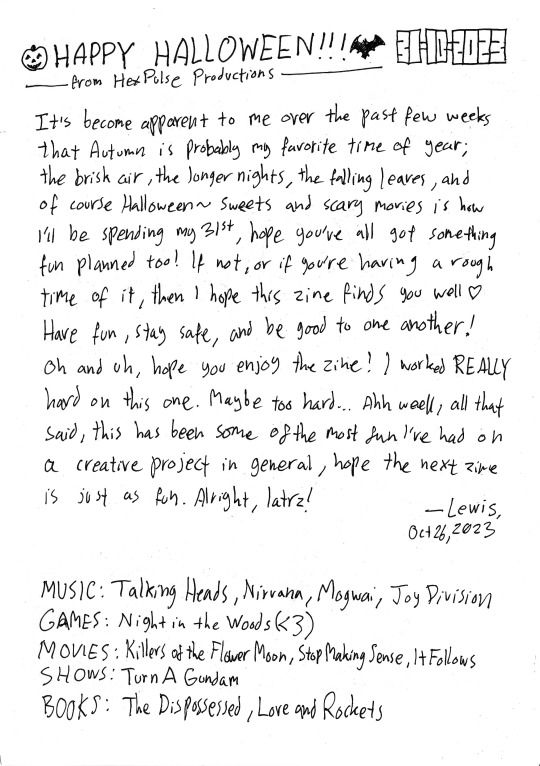 HAPPY HALLOWEEN!!!
from HexPulse Productions
It's become apparent to me over the past few weeks
that Autumn is probably my favorite time of year;
the brisk air, the longer nights, the falling leaves, and
of course Halloween~ Sweets and scary movies is how
I'll be spending my 31st, hope you've all got something
fun planned too! If not, or if you're having a rough
time of it, then I hope this zine finds you well ♡
Have fun, stay safe, and be good to one another!
Oh and uh, hope you enjoy the zine! I worked REALLY
hard on this one. Maybe too hard... Ahh weell, all that
said, this has been some of the most fun I've had on
a creative project in general, hope the next zine
is just as fun. Alright, latrz!
—Lewis,
Oct 26, 2023
MUSIC: Talking Heads, Nirvana, Mogwai, Joy Division
GAMES: Night in the Woods (<3)
MOVIES: Killers of the Flower Moon, Stop Making Sense, It Follows
SHOWS: Turn A Gundam
BOOKS: The Dispossessed, Love and Rockets